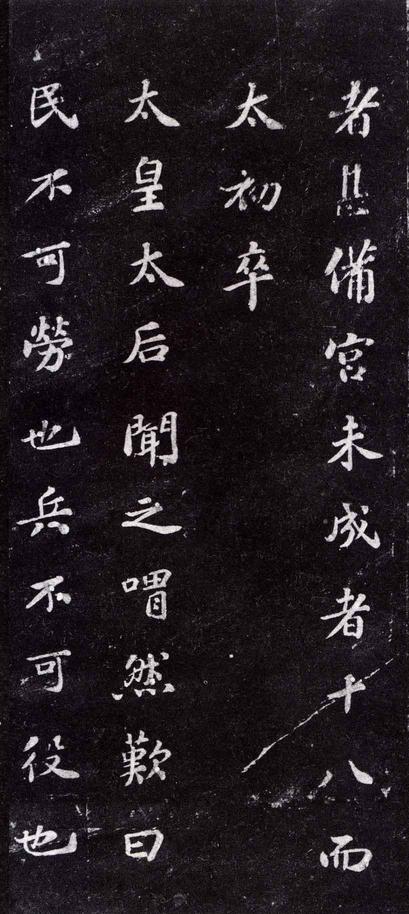 者具備宮未成者十八而
太初卒
太皇太后聞之喟然歎曰
民不可勞也兵不可役也